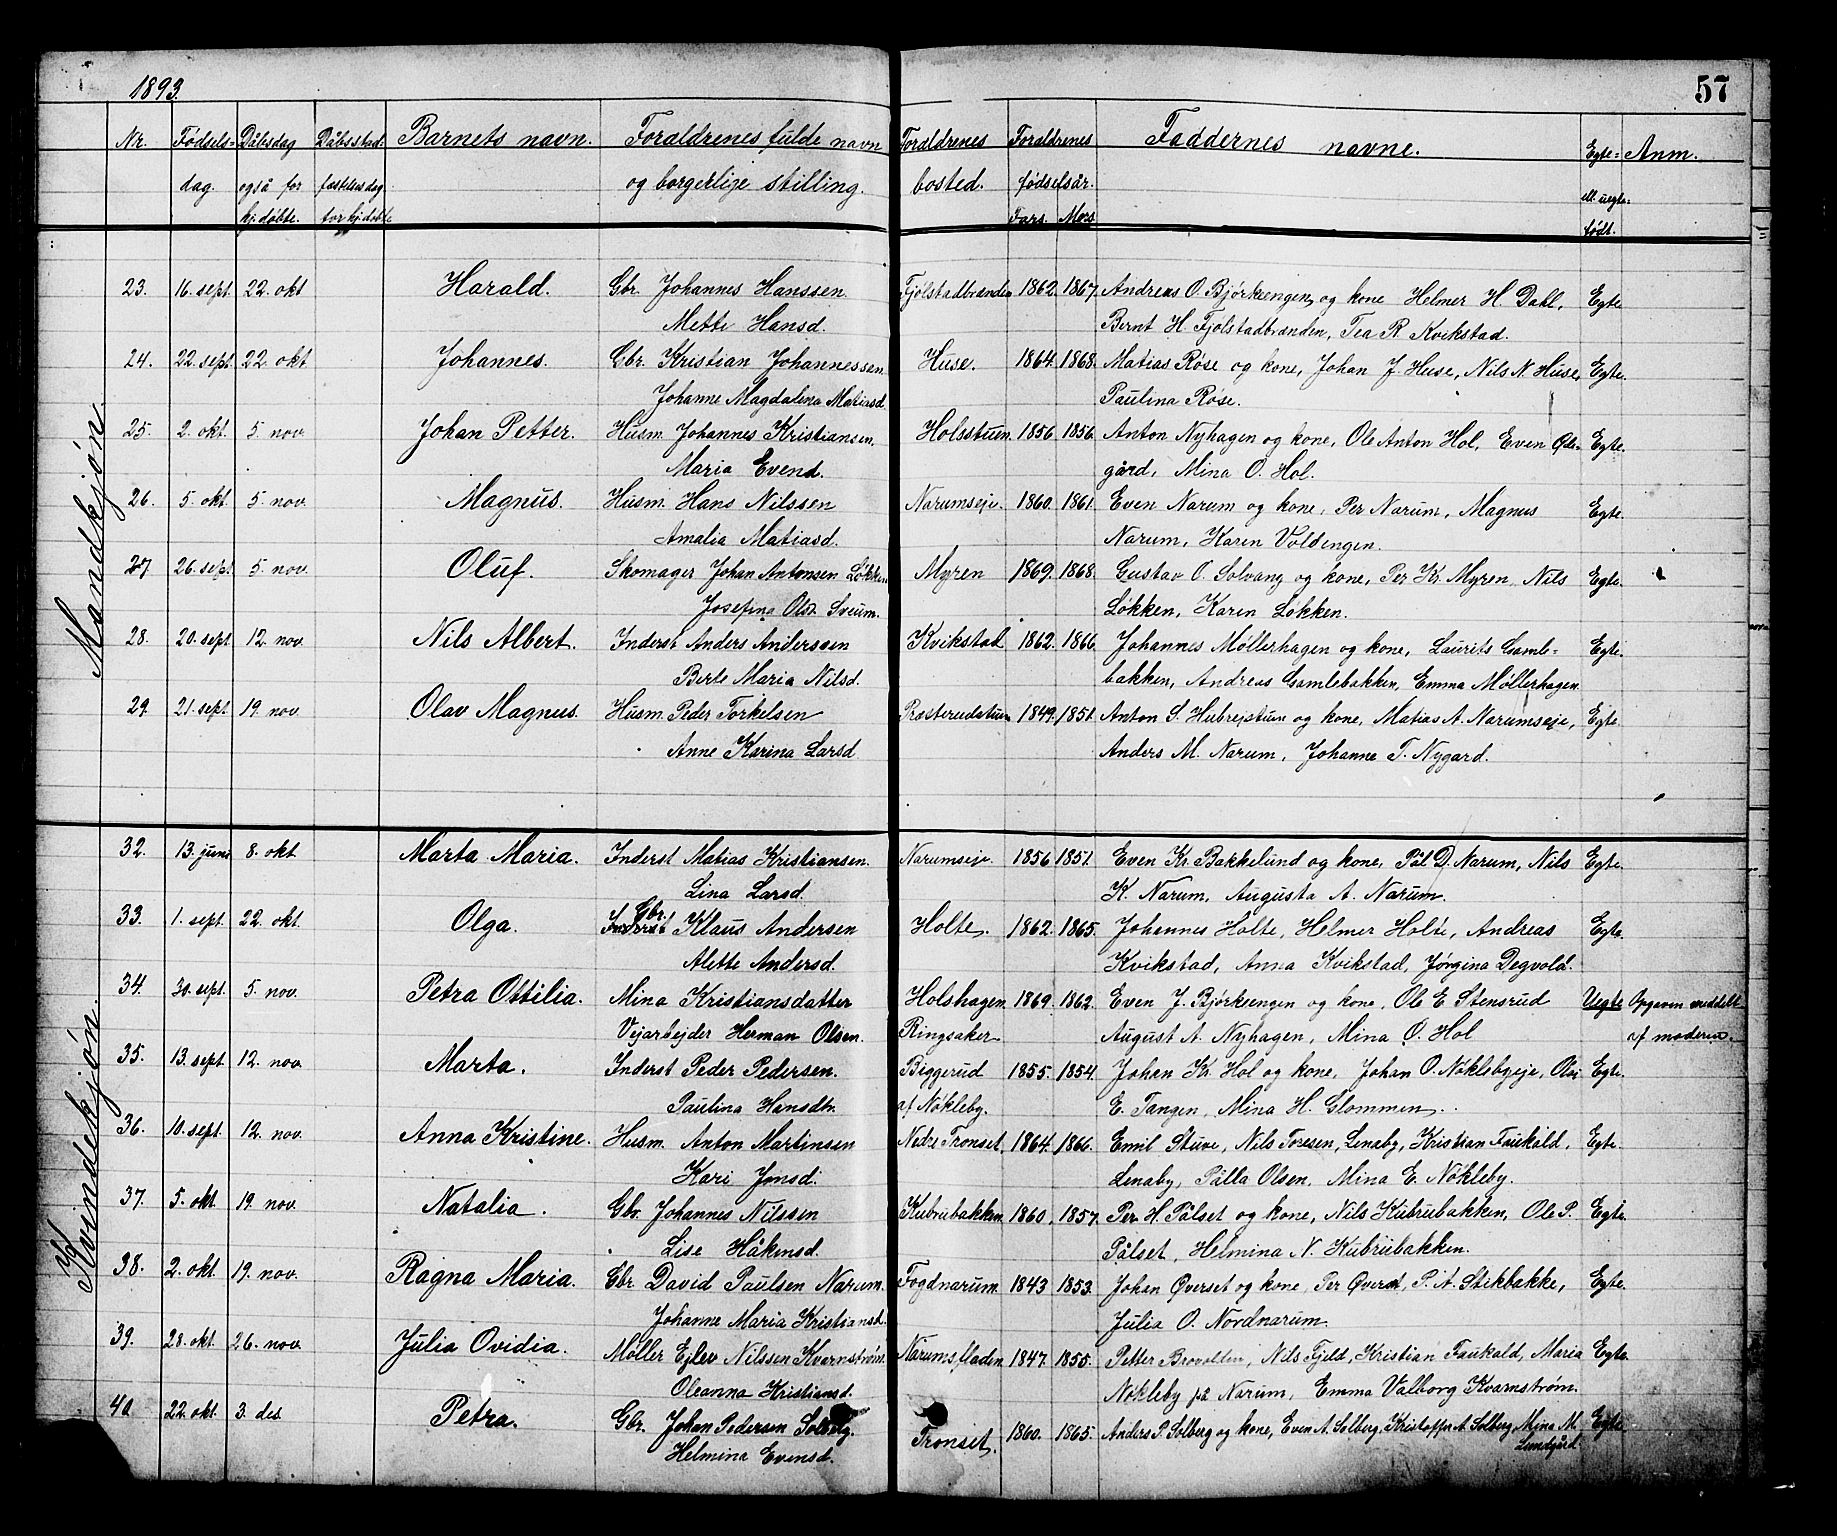 1893.
57
Nr. Fødsels= Dåbsdag Dåbsstad: Barnets navn. Foraldrenes fulde navn Foraldrenes Foraldrenes Faddernes navne. Egte= Anm.
dag. også for fæstelsesdag og borgerlije stilling. bosted. fødselsår. ell. uegte=
hj. døbte. for hj. døbte Fars. Mors. født.
Mandkjøn.
23. 16. sept. 22. okt Harald. Gbr. Johannes Hanssen. Fjølstadbrænden 1862. 1867. Andreas O. Bjørkeengen og kone Helmer H. Dahl, Egte
Mette Hansd. Bernt H. Fjølstadbrænden, Tea R Kvikstad.
24. 22. sept. 22. okt Johannes. Gbr. Kristian Johannessen Huse. 1864. 1868. Matias Røse og kone, Johan J. Huse, Nils N. Huse, Egte.
Johanne Magdalena Matiasd. Paulina Røse.
25. 2. okt. 5. nov. Johan Petter. Husm. Johannes Kristiansen. Holsstuen 1856 1856. Anton Nyhagen og kone, Ole Anton Hol, Even Øde= Egte.
Maria Evend. gård, Mina O. Hol.
26. 5. okt. 5. nov. Magnus. Husm. Hans Nilssen Narumseje. 1860. 1861. Even Narum og kone, Per Narum, Magnus Egte.
Amalia Matiasd. Narum, Karen Voldengen.
27. 26. sept. 5. nov. Oluf. Skomager Johan Antonsen Løkken Myren 1869. 1868. Gustav O. Solvang og kone, Per Kr. Myren, Nils Egte.
Josefina Olsd. Sveum. Løkken, Karen Løkken.
28. 20. sept. 12. nov. Nils Albert. Inderst Anders Anderssen Kvikstad 1862. 1866 Johannes Møllerhagen og kone, Laurits Gamle= Egte.
Berte Maria Nilsd. bakken, Andreas Gamlebakken, Emma Møllerhagen.
29. 21. sept. 19. nov. Olav Magnus. Husm. Peder Torkelsen Præsterudstuen 1849. 1851. Anton S. Hubrejstuen og kone, Matias A. Narumseje, Egte.
Anne Karina Larsd. Anders M. Narum, Johanne T. Nygard.
Kvindekjøn.
32. 13. juni 8. okt Marta Maria. Inderst Matias Kristiansen. Narumseje. 1856 1851. Even Kr. Bakkelund og kone, Pål D. Narum, Nils Egte.
Lina Larsd. K. Narum, Augusta A. Narum.
33. 1. sept. 22. okt. Olga. Inderst Gbr. Klaus Andersen Holte. 1862. 1865. Johannes Holte, Helmer Holte, Andreas Egte.
Alette Andersd. Kvikstad, Anna Kvikstad, Jørgina Degvold.
34. 30. sept. 5. nov. Petra Ottilia. Mina Kristiansdatter Holshagen. 1869. 1862. Even J. Bjørkeengen og kone, Ole E Stensrud Uegte Opgaven meddelt
Vejarbejder Herman Olsen. Ringsaker August A. Nyhagen, Mina O. Hol af moderen.
35. 13. sept. 12. nov. Marta. Inderst Peder Pedersen. Biggerud 1855. 1854. Johan Kr. Hol og kone, Johan O. Nøklebyeje, Egte.
Paulina Hansdtr. af Nøkleby. E. Tangen, Mina H. Glommen.
36. 10. sept. 12. nov. Anna Kristine. Husm. Anton Martinsen Nedre Tronset. 1864. 1866. Emil Stuve, Nils Toresen, Lenaby, Kristian Faukald, Egte.
Kari Jonsd. Lenaby, Pålla Olsen, Mina E. Nøkleby.
37. 5. okt. 19. nov. Natalia. Gbr. Johannes Nilssen Kubrubakken. 1860. 1857. Per H. Pålset og kone, Nils Kubrubakken, Ole P. Egte.
Lise Håkensd. Pålset, Helmina N. Kubrubakken.
38. 2. okt. 19. nov. Ragna Maria. Gbr. David Paulsen Narum. Fogdnarum. 1843 1853. Johan Øverset og kone, Per Øverset, P. A. Stikbakke, Egte.
Johanne Maria Kristiansd. Julia O. Nordnarum.
39. 28. okt. 26. nov. Julia Ovidia. Møller Ejlev Nilssen Kvarnstrøm. Narumsfladen 1847. 1855. Petter Brovolten, Nils Fjeld, Kristian Faukald, Maria Egte.
Oleanna Kristiansd. Nøkleby på Narum, Emma Valborg Kvarnstrøm.
40 22. okt. 3. des. Petra. Gbr. Johan Pedersen Solberg. Tronset. 1860. 1865. Anders P. Solberg og kone, Even A. Solberg, Kristoffer A. Solberg, Mina M. Egte
Helmina Evensd. Lundgård.